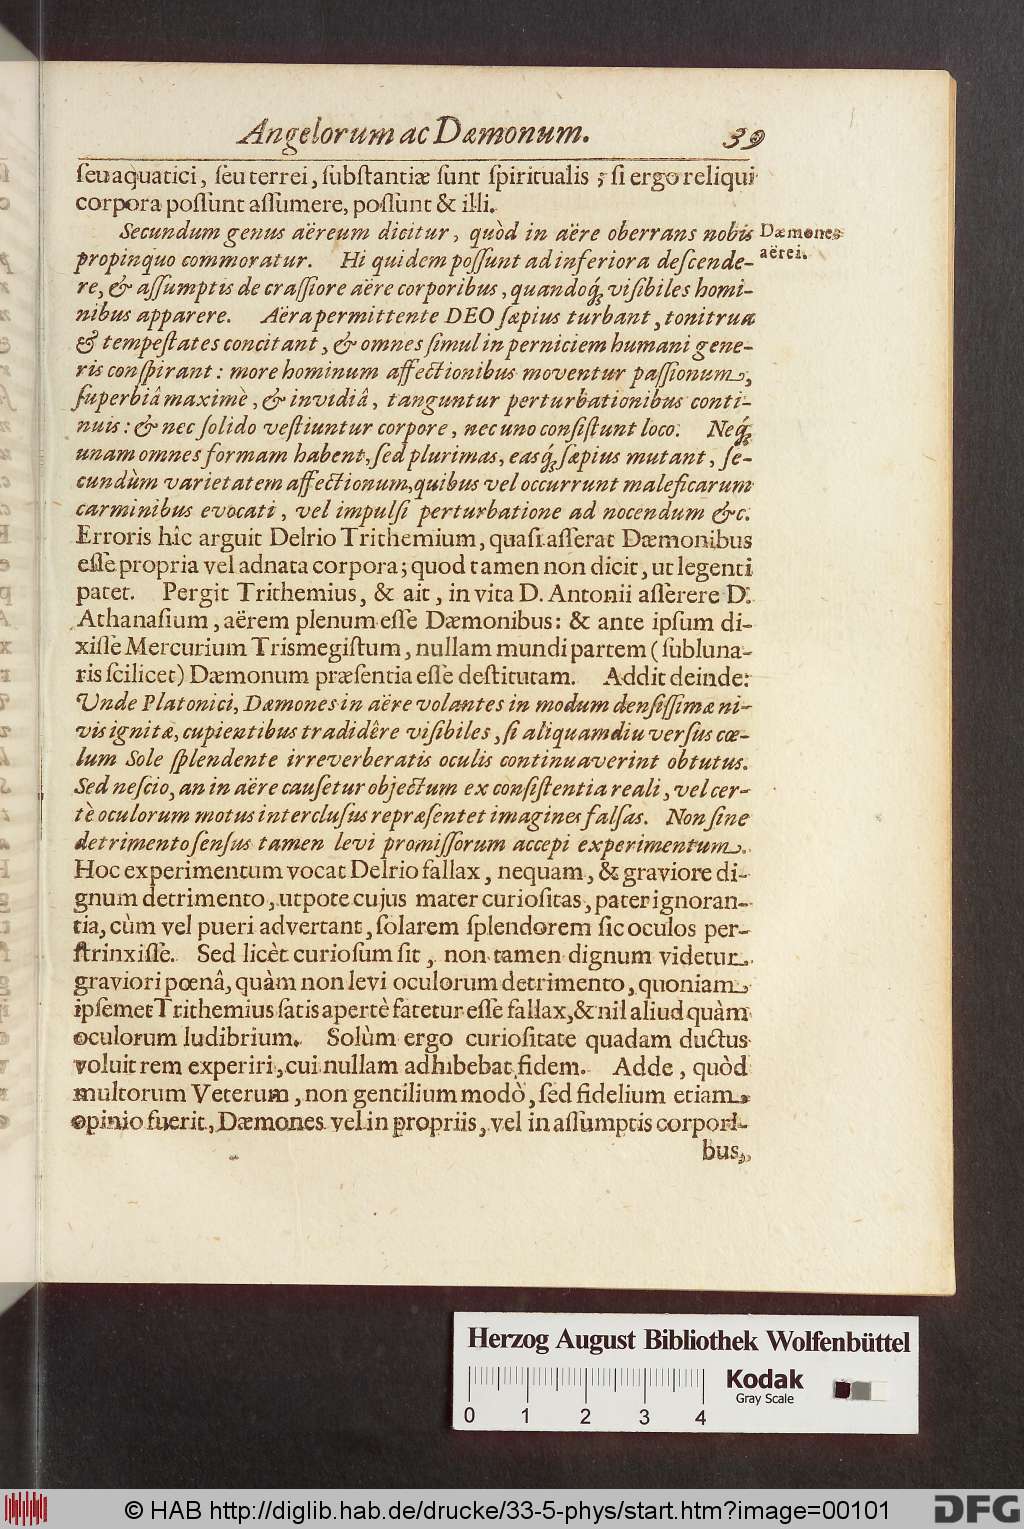 Angelorum ac Dæmonum. 39
ſeu aquatici, ſeu terrei, ſubſtantiæ ſunt ſpiritualis; ſi ergo reliqui
corpora poſſunt aſſumere, poſſunt & illi.
Secundum genus aëreum dicitur, quòd in aëre oberrans nobis
Dæmones
aërei.
propinquo commoratur. Hi quidem poſſunt ad inferiora deſcende-
re, & aſſumptis de craſſiore aëre corporibus, quandoq́; viſibiles homi-
nibus apparere. Aëra permittente DEO ſæpius turbant, tonitrua
& tempeſtates concitant, & omnes ſimul in perniciem humani gene-
ris conſpirant: more hominum affectionibus moventur paſſionum,
ſuperbiâ maximè, & invidiâ, tanguntur perturbationibus conti-
nuis: & nec ſolido veſtiuntur corpore, nec uno conſiſtunt loco. Neq́;
unam omnes formam habent, ſed plurimas, easq́; ſæpius mutant, ſe-
cundùm varietatem affectionum, quibus vel occurrunt maleficarum
carminibus evocati, vel impulſi perturbatione ad nocendum &c.
Erroris hîc arguit Delrio Trithemium, quaſi aſſerat Dæmonibus
eſſe propria vel adnata corpora; quod tamen non dicit, ut legenti
patet. Pergit Trithemius, & ait, in vita D. Antonii aſſerere D.
Athanaſium, aërem plenum eſſe Dæmonibus: & ante ipſum di-
xiſſe Mercurium Trismegiſtum, nullam mundi partem (ſubluna-
ris ſcilicet) Dæmonum præſentia eſſe deſtitutam. Addit deinde:
Unde Platonici, Dæmones in aëre volantes in modum denſiſſimæ ni-
vis ignitæ, cupientibus tradidêre viſibiles, ſi aliquamdiu verſus cœ-
lum Sole ſplendente irreverberatis oculis continuaverint obtutus.
Sed neſcio, an in aëre cauſetur objectum ex conſiſtentia reali, vel cer-
tè oculorum motus intercluſus repræſentet imagines falſas. Non ſine
detrimento ſenſus tamen levi promiſſorum accepi experimentum.
Hoc experimentum vocat Delrio fallax, nequam, & graviore di-
gnum detrimento, utpote cujus mater curioſitas, pater ignoran-
tia, cùm vel pueri advertant, ſolarem ſplendorem ſic oculos per-
ſtrinxiſſe. Sed licèt curioſum ſit, non tamen dignum videtur
graviori pœnâ, quàm non levi oculorum detrimento, quoniam
ipſemet Trithemius ſatis apertè fatetur eſſe fallax, & nil aliud quàm
oculorum ludibrium. Solùm ergo curioſitate quadam ductus
voluit rem experiri, cui nullam adhibebat fidem. Adde, quòd
multorum Veterum, non gentilium modò, ſed fidelium etiam
opinio fuerit, Dæmones vel in propriis, vel in aſſumptis corpori-
bus,
Herzog August Bibliothek Wolfenbüttel
Kodak
Gray Scale
0 1 2 3 4
© HAB http://diglib.hab.de/drucke/33-5-phys/start.htm?image=00101
DFG